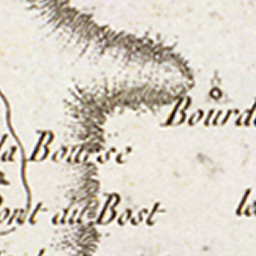 Bourd
la Bourse
Pont au Bost
la